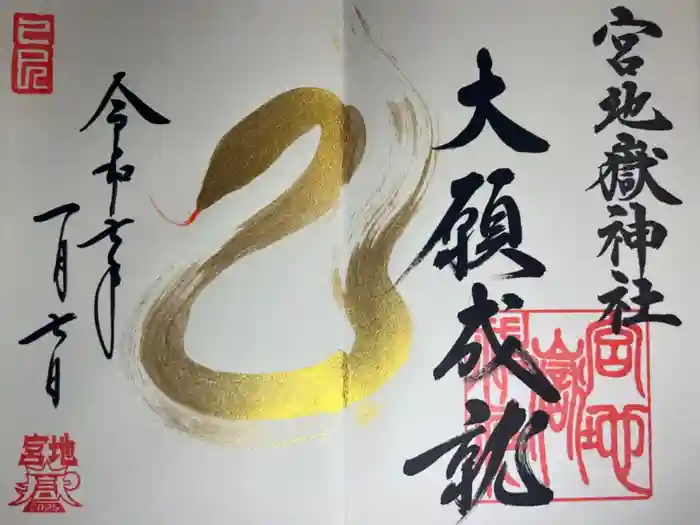 宮地嶽神社
大願成就
令和七年
一月七日
己巳
宮地嶽
2025